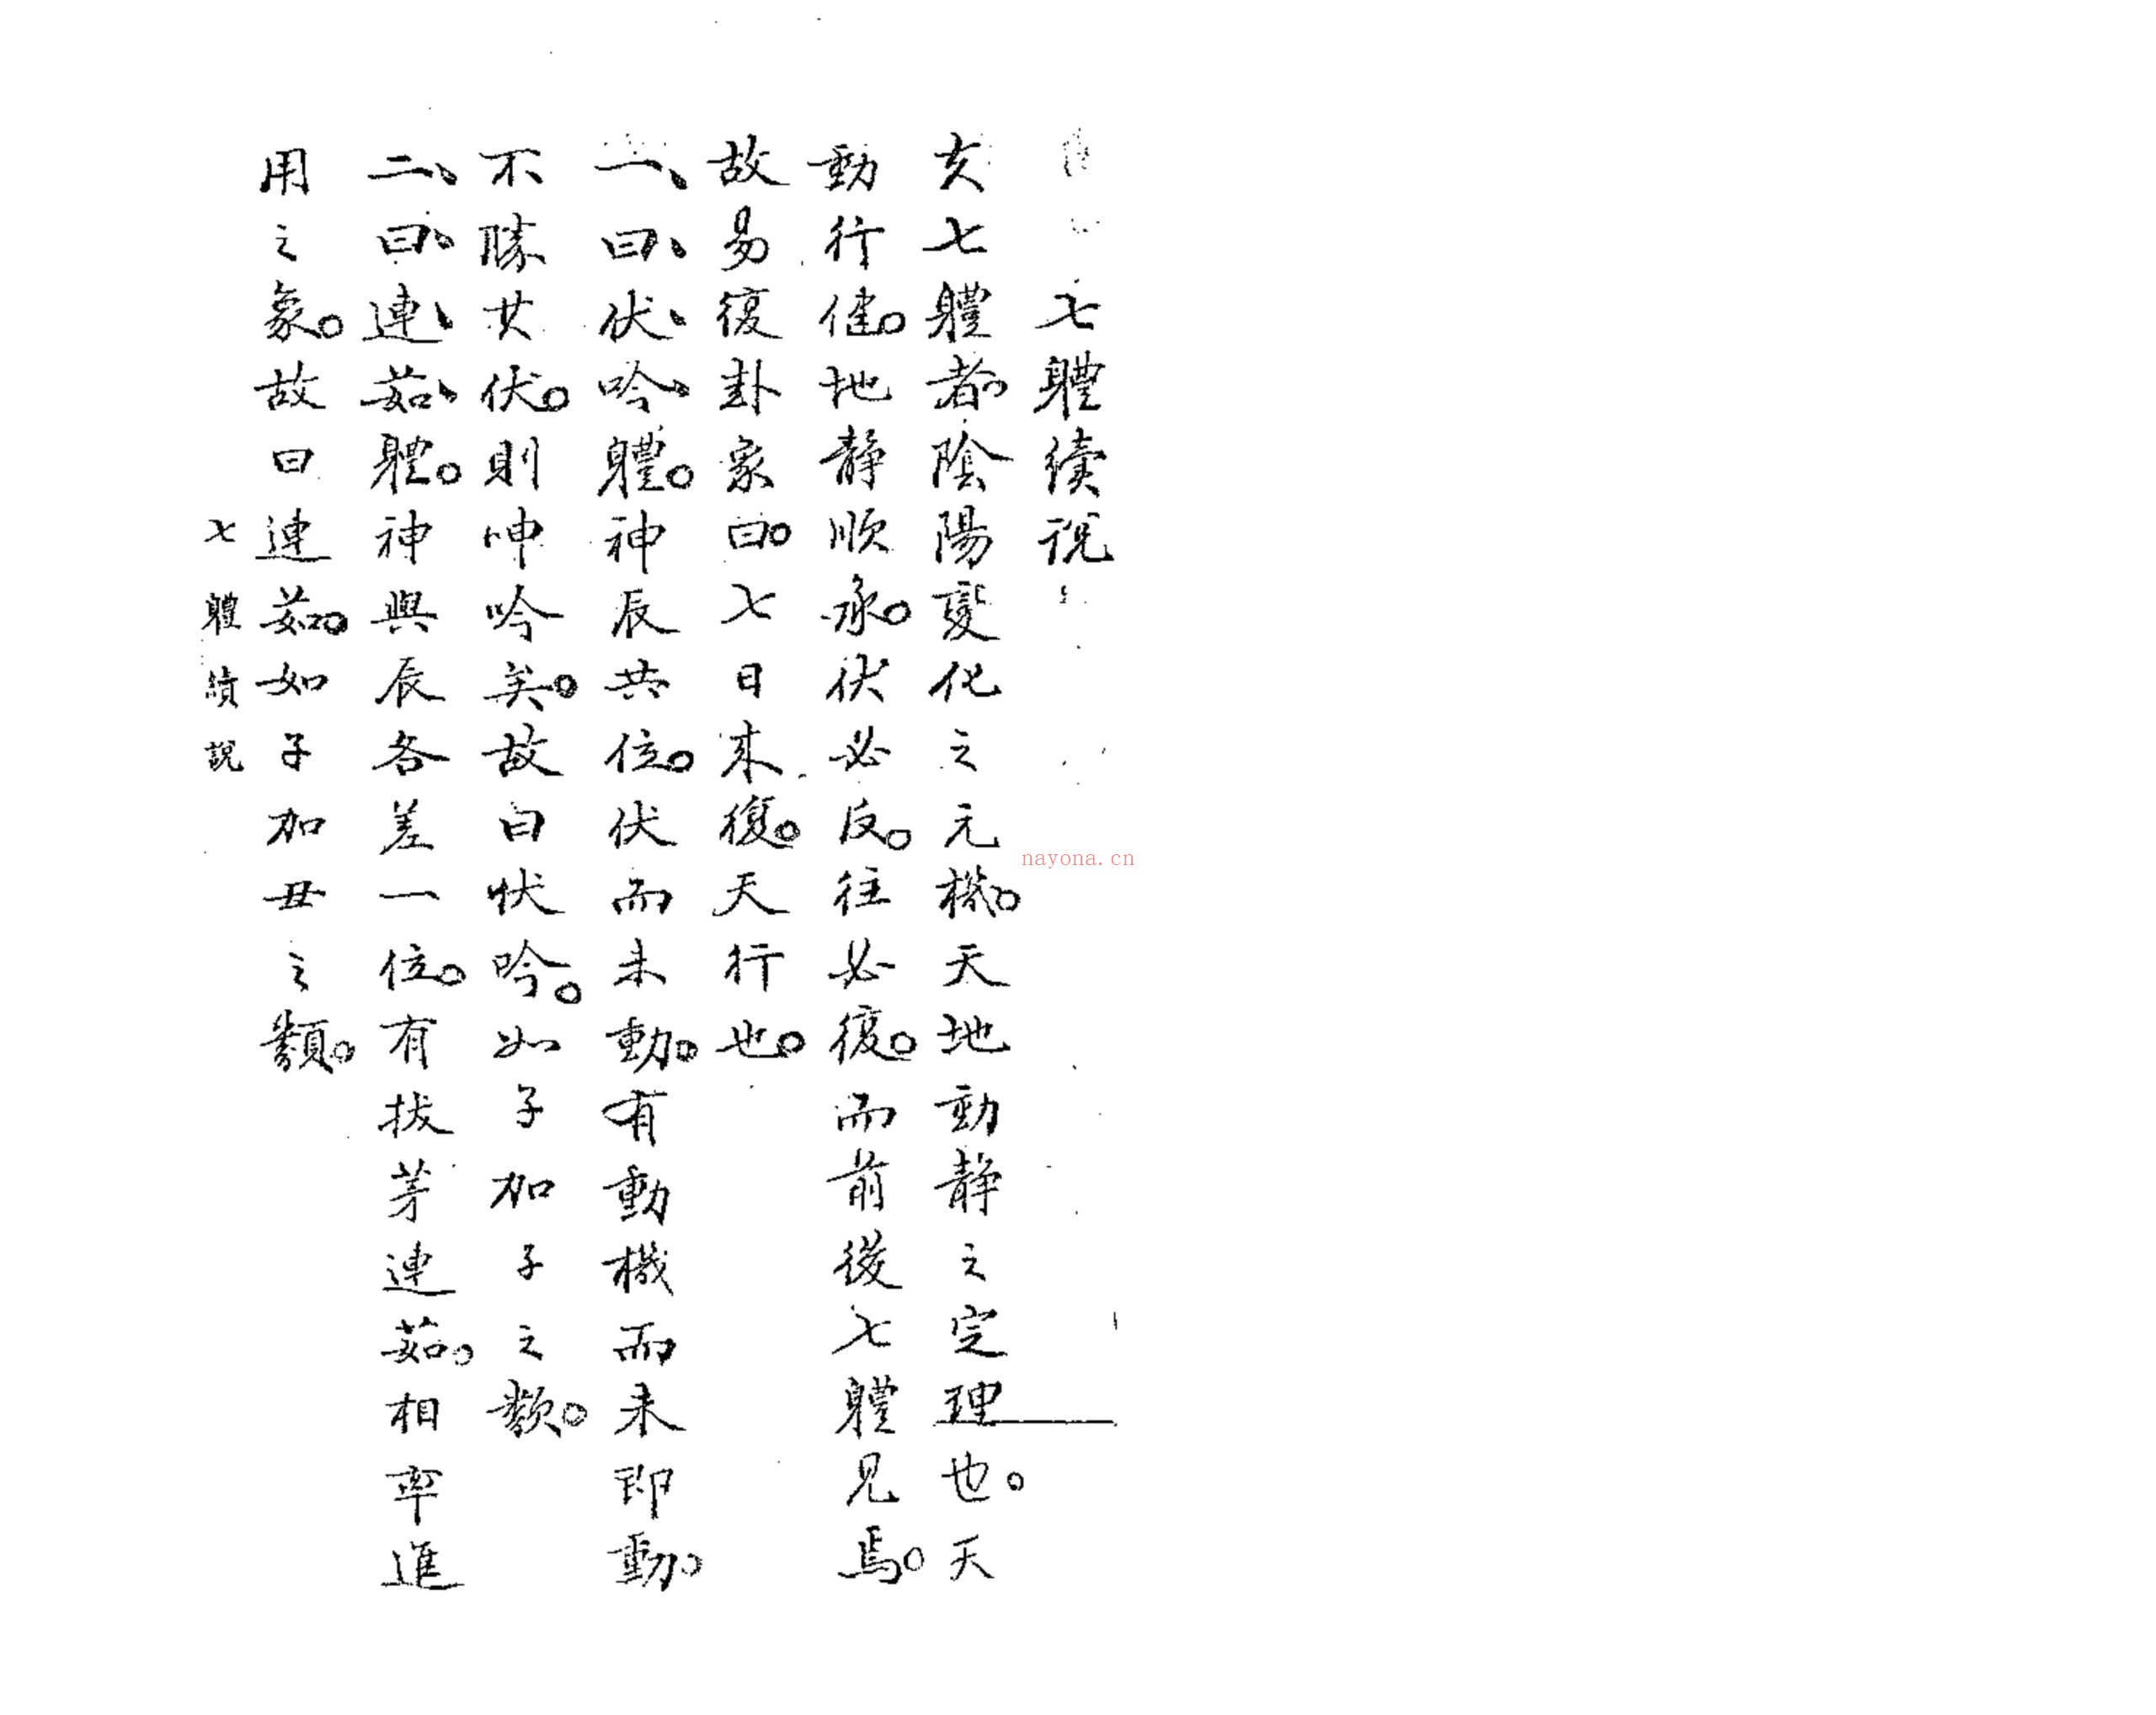 七體續説
夫七體者陰陽變化之元機。天地動靜之定理也。天
動行健。地靜順承。伏必反。往必復。而前後七體見焉。
故易復卦彖曰。七日来復。天行也。
一、曰、伏、吟、體。神辰共位。伏而未動。有動機而未即動。
不勝其伏。則呻吟矣。故曰伏吟。如子加子之類。
二、曰、連、茹、體。神與辰各差一位。有拔茅連茹。相率進
用之象。故曰連茹。如子加丑之類。
七體續說
nayona.cn